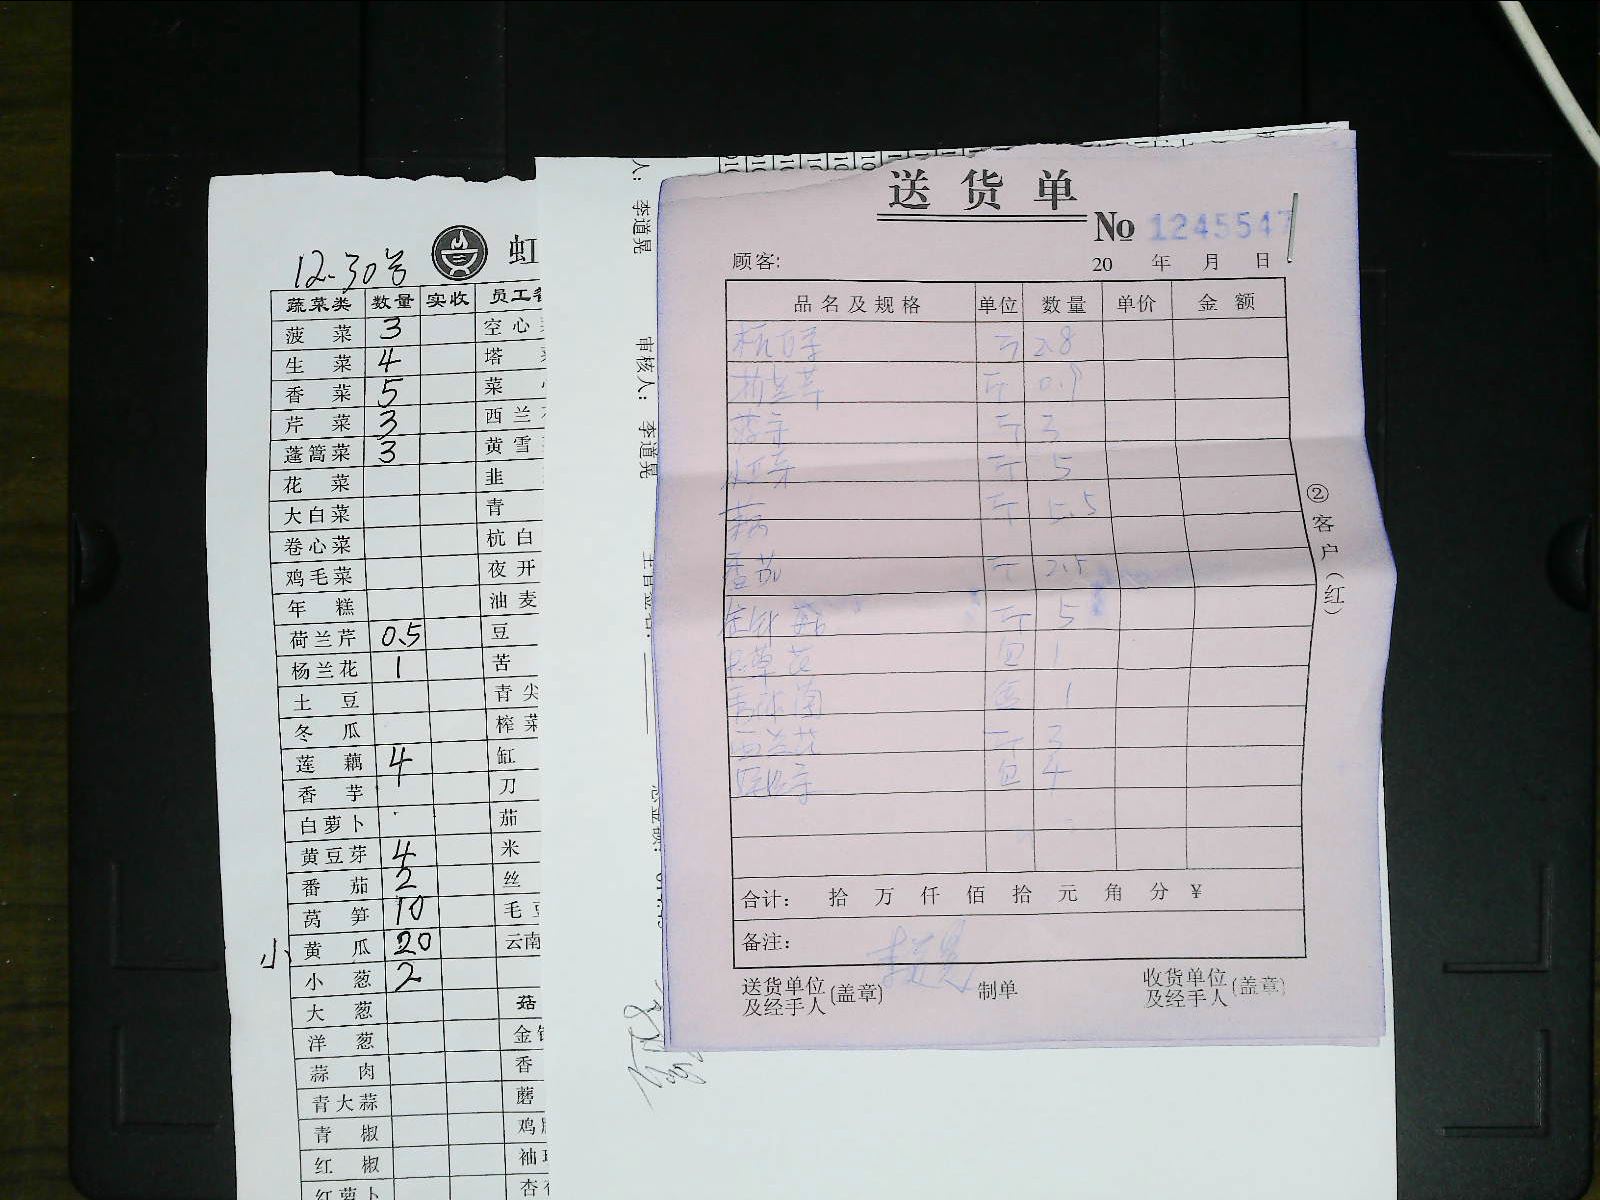 12-30号
虹
蔬菜类 数量 实收 员工
菠菜 3 空心
生菜 4 塔
香菜 5 菜
芹菜 3 西兰
蓬蒿菜 3 黄雪
花菜 韭
大白菜 青
卷心菜 杭白
鸡毛菜 夜开
年糕 油麦
荷兰芹 0.5 豆
杨兰花 1 苦
土豆 青尖
冬瓜 榨菜
莲藕 4 缸
香芋 刀
白萝卜 茄
黄豆芽 4 米
番茄 2 丝
莴笋 10 毛豆
小 黄瓜 20 云南
小葱 2
大葱 菇
洋葱 金针
蒜肉 香
青大蒜 蘑
青椒 鸡
红椒 袖
红萝卜 杏
人: 李道晃
审核人: 李道晃
送货单
No 1245547
顾客:
20 年 月 日
品名及规格 单位 数量 单价 金额
斤 2.8
斤 0.9
斤 3
斤 5
藕 斤 5.5
番茄 斤 2.5
金针菇 斤 5
草菇 包 1
盒 1
西兰花 斤 3
包 4
合计: 拾 万 仟 佰 拾 元 角 分 ¥
备注:
送货单位及经手人(盖章) 制单 收货单位及经手人(盖章)
②客户(红)